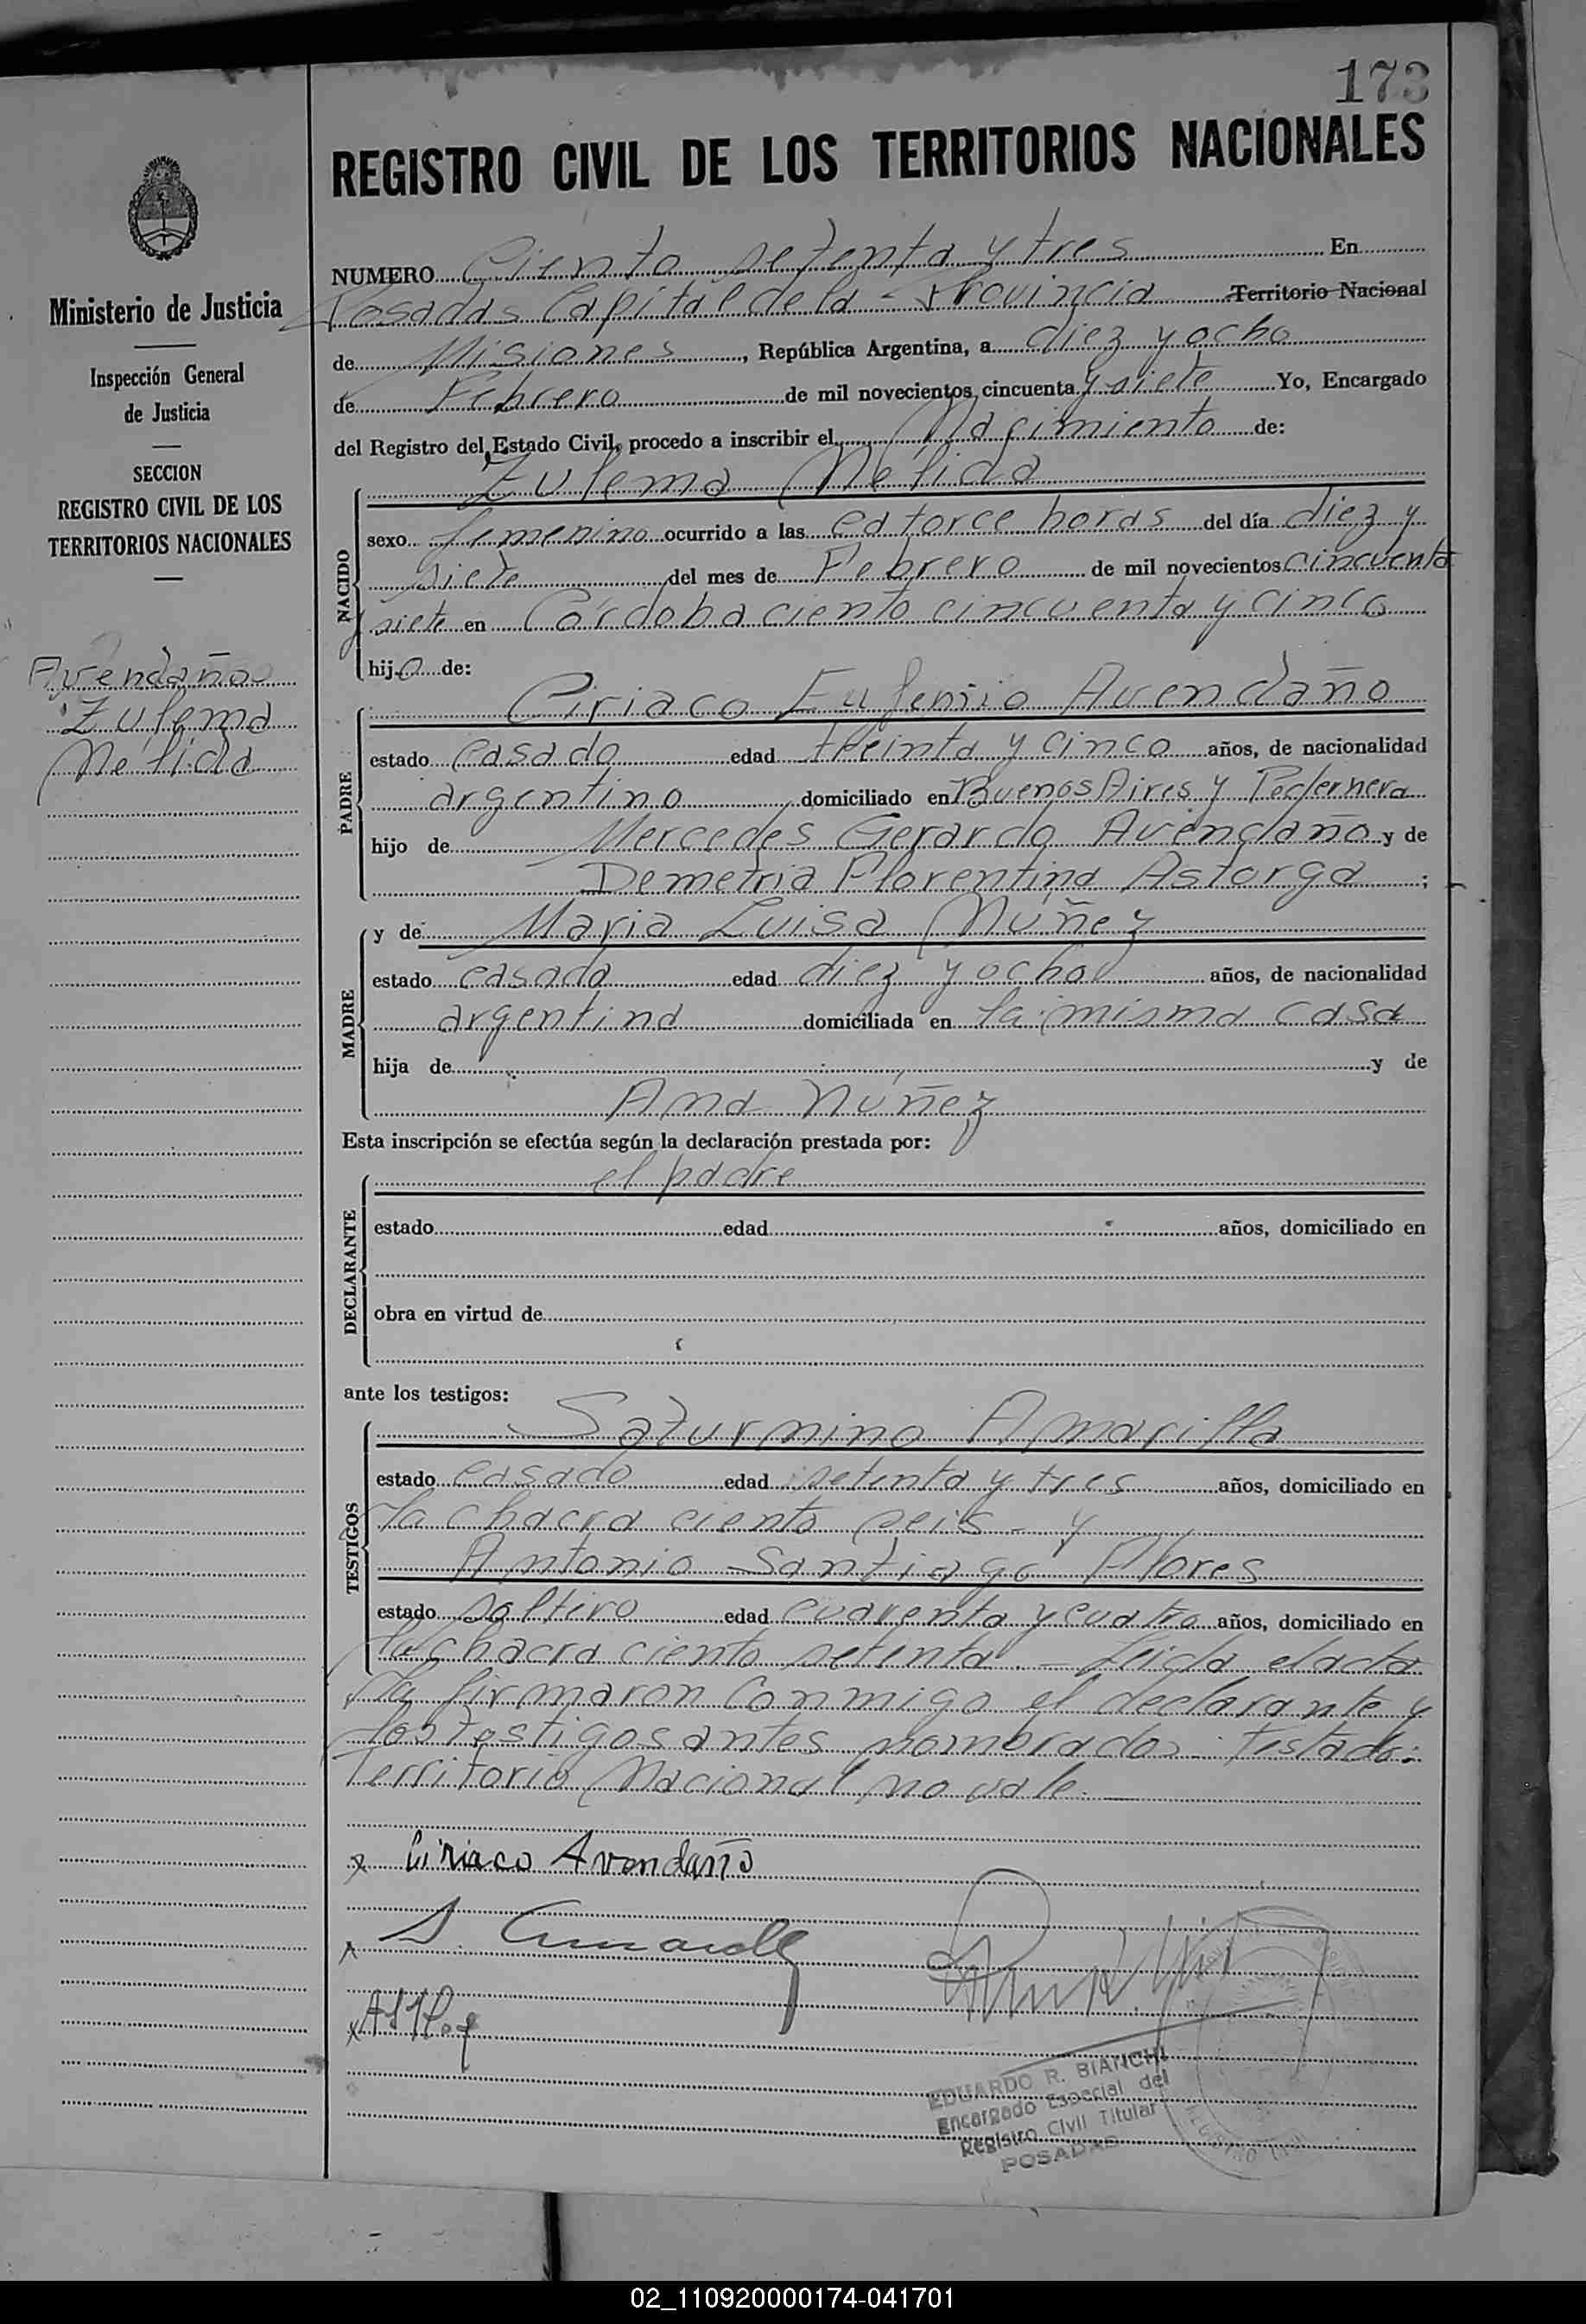 173
REGISTRO CIVIL DE LOS TERRITORIOS NACIONALES
Ministerio de Justicia
Inspección General
de Justicia
SECCION
REGISTRO CIVIL DE LOS
TERRITORIOS NACIONALES
Avendaño
Zulema
Nélida
NUMERO Ciento setenta y tres En
Posadas Capital de la - Provincia Territorio Nacional
de Misiones, República Argentina, a diez y ocho
de Febrero de mil novecientos cincuenta y siete Yo, Encargado
del Registro del Estado Civil, procedo a inscribir el Nacimiento de:
NACIDO
Zulema Nélida
sexo femenino ocurrido a las catorce horas del día diez y
siete del mes de Febrero de mil novecientos cincuenta
y siete en Córdoba ciento cincuenta y cinco
hija de:
PADRE
Ciriaco Eufemio Avendaño
estado casado edad treinta y cinco años, de nacionalidad
argentino domiciliado en Buenos Aires y Pedernera
hijo de Mercedes Gerardo Avendaño y de
Demetria Florentina Astorga ;
MADRE
y de Maria Luisa Núñez
estado casada edad diez y ocho años, de nacionalidad
argentina domiciliada en la misma casa
hija de y de
Ana Núñez
Esta inscripción se efectúa según la declaración prestada por:
DECLARANTE
el padre
estado edad años, domiciliado en
obra en virtud de
ante los testigos:
TESTIGOS
Saturnino Amarilla
estado casado edad setenta y tres años, domiciliado en
la chacra ciento seis - y
Antonio Santiago Flores
estado soltero edad cuarenta y cuatro años, domiciliado en
la chacra ciento setenta. - Leida el acta
la firmaron conmigo el declarante y
los testigos antes nombrados. Testado:
Territorio Nacional no vale.
x Ciriaco Avendaño
x S. Amarilla
x
EDUARDO R. BIANCHI
Encargado Especial del
Registro Civil Titular
POSADAS
02_110920000174-041701